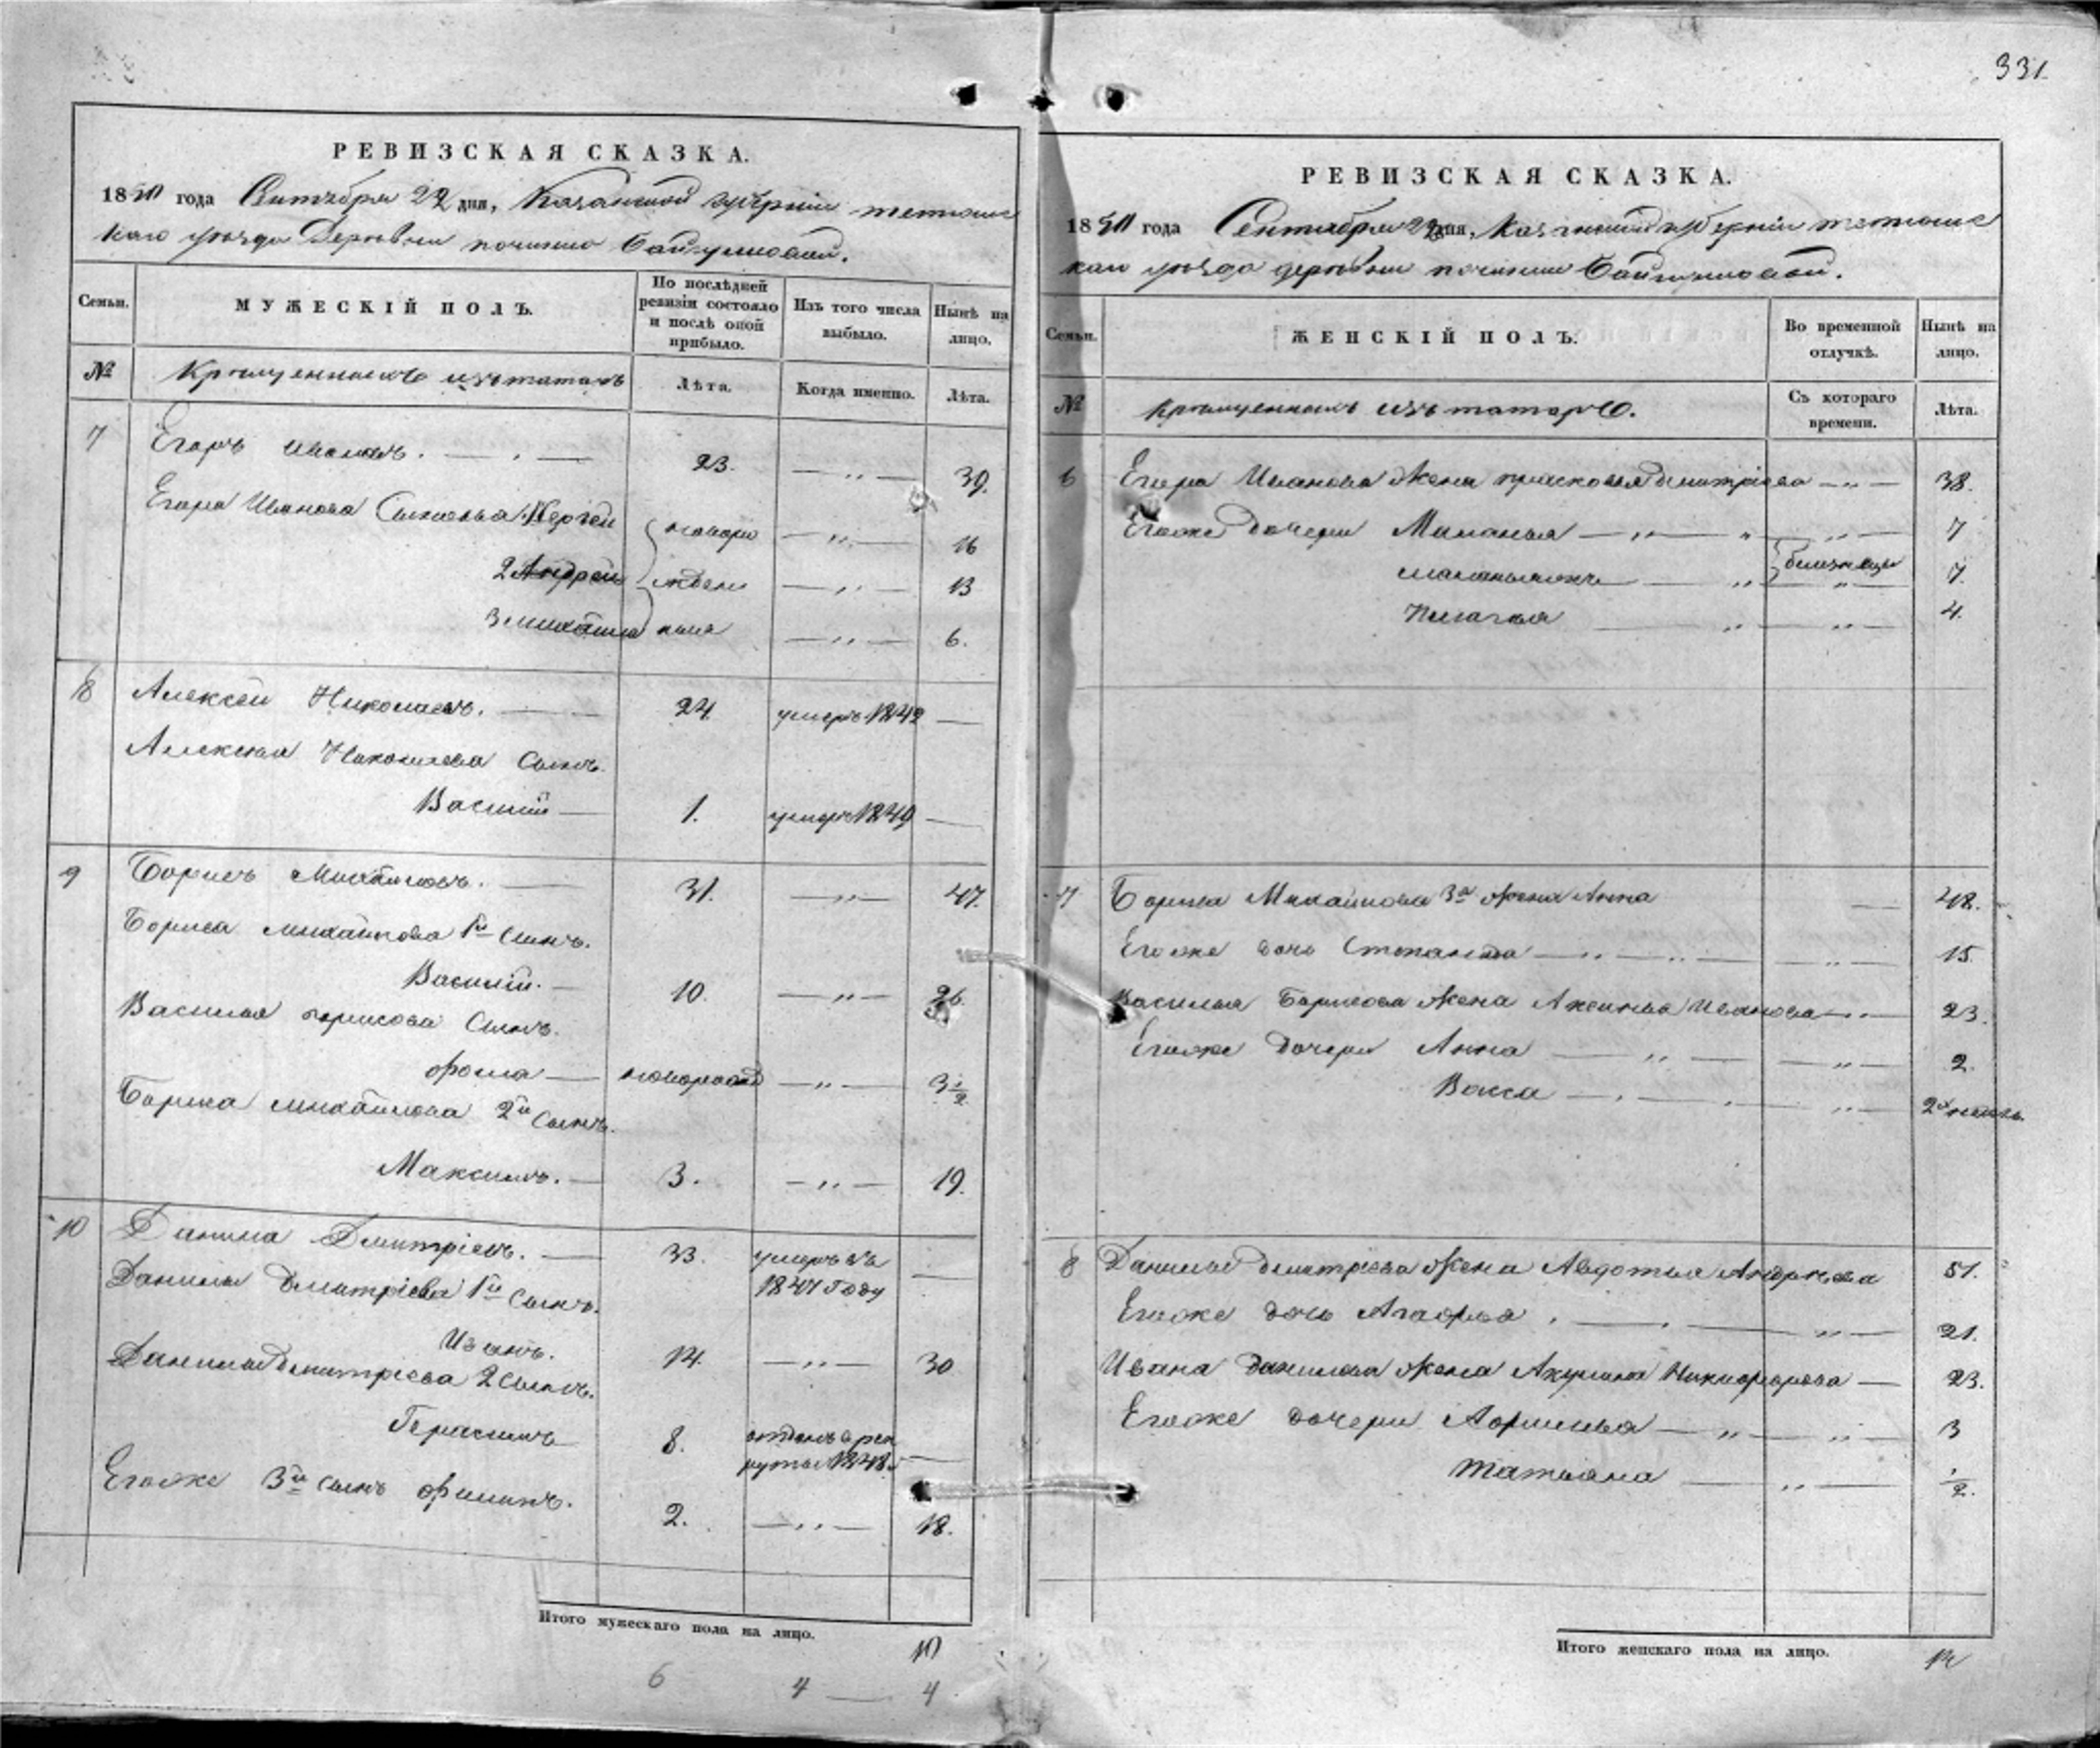 331.
РЕВИЗСКАЯ СКАЗКА.
1850 года Сентября 22 дня, Казанской губерніи тетюшс
каго уѣзда Деревни починка
Семьи.
МУЖЕСКІЙ ПОЛЪ.
По послѣдней ревизіи состояло и послѣ оной прибыло.
Изъ того числа выбыло.
Нынѣ на лицо.
№ Крещенныхъ изъ татаръ
Лѣта. Когда именно. Лѣта.
7 Егоръ Ивановъ. 23. — „ — 39.
Егора Иванова Сыновья 1 Сергей новоро — „ — 16
2 Андрей жден — „ — 13
3 михайла ныя — „ — 6.
8 Алексей Николаевъ. — 24. умеръ 1842 —
Алексея Николаева Сынъ.
Василий — 1. умеръ 1849 —
9 Борисъ Михайловъ. — 31. — „ — 47.
Бориса михайлова 1й Сынъ.
Василий. — 10. — „ — 26.
Василья борисова Сынъ.
фома — новорожд — „ — 3 1/2
Бориса михайлова 2й Сынъ.
Максимъ. — 3. — „ — 19.
10 Данила Дмитріевъ. — 33. умеръ въ —
1847 Году
Данилы Дмитріева 1й Сынъ.
Иванъ. 14. — „ — 30
Данилы Дмитріева 2 Сынъ.
Герасимъ 8. отданъ в рек —
руты 1848.
Егоже 3й сынъ филипъ. 2. — „ — 18.
Итого мужескаго пола на лицо.
10
6 4 — 4
РЕВИЗСКАЯ СКАЗКА.
1850 года Сентября 22 дня, Казанской губерніи тетюшс
каго уѣзда деревни починка
Семьи.
ЖЕНСКІЙ ПОЛЪ.
Во временной отлучкѣ.
Нынѣ на лицо.
№ Крещенныхъ изъ татаръ.
Съ котораго времени.
Лѣта.
6 Егора Иванова Жена прасковья дмитріева — „ — 38.
Егоже дочери Маланья — „ — „ — 7
близнецы
маланьяжъ — „ — „ — 7.
Пелагея — „ — „ — 4.
7 Бориса Михайлова 3я Жена Анна — 48.
Егоже дочь Степанида — „ — „ — 15.
Василья Борисова Жена Аксинья Иванова — „ — 23.
Егоже дочери Анна — „ — „ — 2.
Васса — „ — „ — 2х недель.
8 Данилы дмитріева Жена Авдотья Андреева 51.
Егоже дочь Агафья. — „ — 21.
Ивана данилова Жена Акулина Никифорова — 23.
Егоже дочери — „ — „ — 3
татьяна — „ — 1/2.
Итого женскаго пола на лицо.